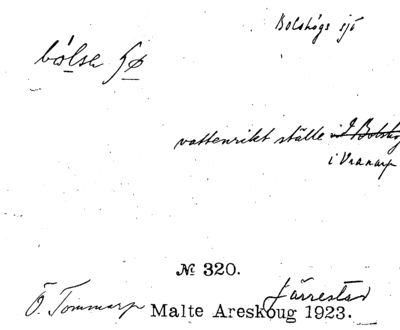 Bolshögs sjö
bólsa sø
vattenrikt ställe i Bolshög
i Vranarp
№ 320.
Ö. Tommarp Järrestad
Malte Areskoug 1923.